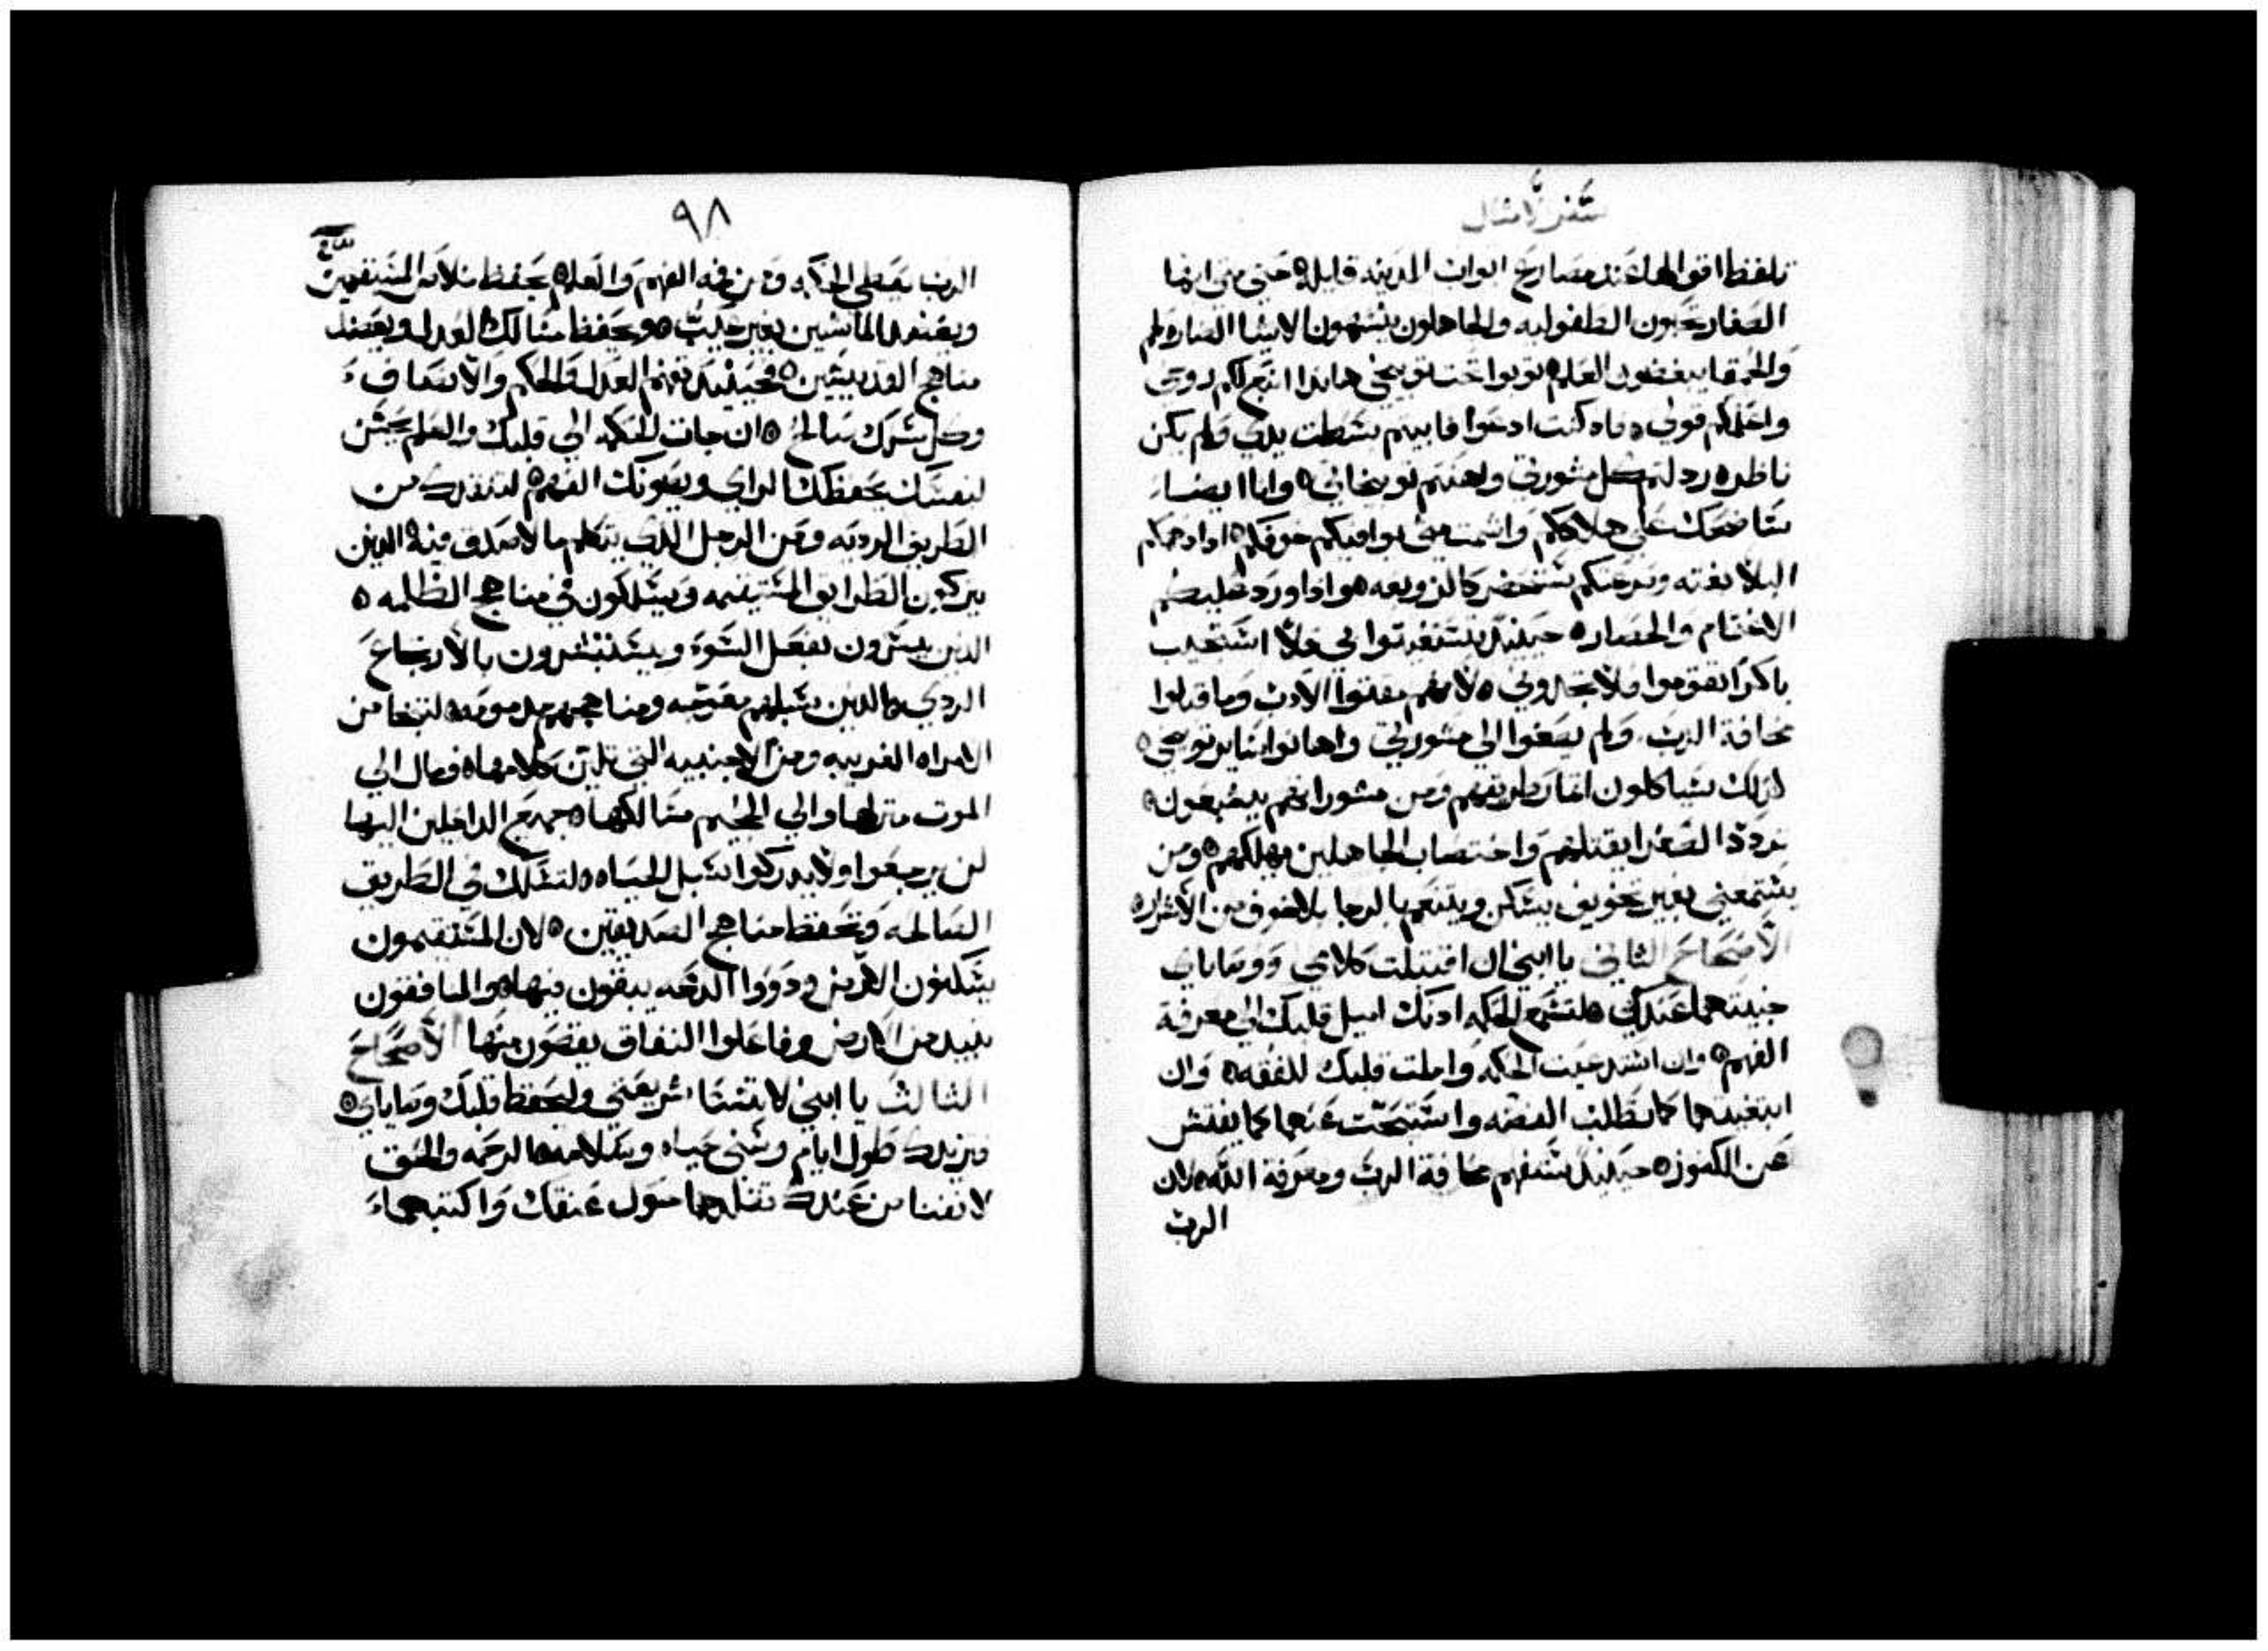 سفر الامثال
تلفظ اقوالها عند مصاريع ابواب المدينه قايله حتى متى ايها
الصغار تحبون الطفوليه والجاهلون يشتهون الاشيا الضاره لهم
والحمقا يبغضون العلم توبوا تحت توبيخي هاندا انتج لكم روحي
واعلمكم قولي فاد كنت ادعوا فابيتم بسطت يدي ولم يكن
ناظر رذلتم كل مشورتي واهنتم توبيخاتي وانا ايضا
ساضحك على هلاككم واشمت متى يوافيكم خوفكم اذا دهمكم
البلا بغته ونزحتكم ستحضر كالزوبعه اذا ورد عليكم
الاغتمام والحصار حينيد يستغيثوا بي فلا استجيب
باكرا يقوموا فلا يجدوني لانهم مقتوا الادب وما قبلوا
مخافة الرب ولم يصغوا الى مشورتي واهانوا ساير توبيخي
لذلك سياكلون اثمار طريقهم ومن مشوراتهم يشبعون
تردد الصغرا يقتلهم واختصاب الجاهلين يهلكهم ومن
يستمعني بغير تخويف يسكن ويتنعم بالرجا بلا خوف من الاشرار
الاصحاح الثاني يا ابني ان اقتبلت كلامي ووصاياي
خبيتهما عندك لتسمع الحكمه ادنك اميل قلبك الى معرفة
الفهم وان استدعيت الحكمه واملت قلبك للفقه وان
ابتغيتها كما تطلب الفضه واستبحتت عنها كما يفتش
عن الكنوز حينيد ستفهم مخافة الرب ومعرفة الله لان
الرب
٩٨
الرب يعطي الحكمه ومن فيه الفهم والعلم يحفظ سلامه المستقيمين
ويعضد الماشين بغير عيب ويحفظ مسالك العدل ويعضد
مناهج القديسين فحينيد تفهم العدل والحكم والانصاف
وكل شرك صالح ان جات الحكمه الى قلبك والعلم يحسن
لنفسك يحفظك الراي ويصونك الفهم لتنقدك من
الطريق الرديه ومن الرجل الذي يتكلم ما لا صدق فيه الذين
يتركون الطرايق المستقيمه ويسلكون في مناهج الظلمه
الذين يسرون بفعل السوء ويستبشرون بالارتجاع
الردي الذين سبلهم معوجه ومناهجهم مدمومه لتنجا من
الامراه الغريبه ومن الاجنبيه التي تلين كلامها فمال الى
الموت منزلها والى الجحيم مسالكها جميع الداخلين اليها
لن يرجعوا ولا يدركوا سبل الحياه لتسلك في الطريق
الصالحه وتحفظ مناهج الصديقين لان المستقيمون
يسكنون الارض ودووا الدعه يبقون فيها والمنافقون
تبيد من الارض وفاعلوا النفاق يقصون منها الاصحاح
الثالث يا ابني لا تنسا شريعتي وليحفظ قلبك وصاياي
فتزيدك طول ايام وسني حياه وسلامه الرحمه والحق
لا تفنا من عندك تقلدهما حول عنقك واكتبهما